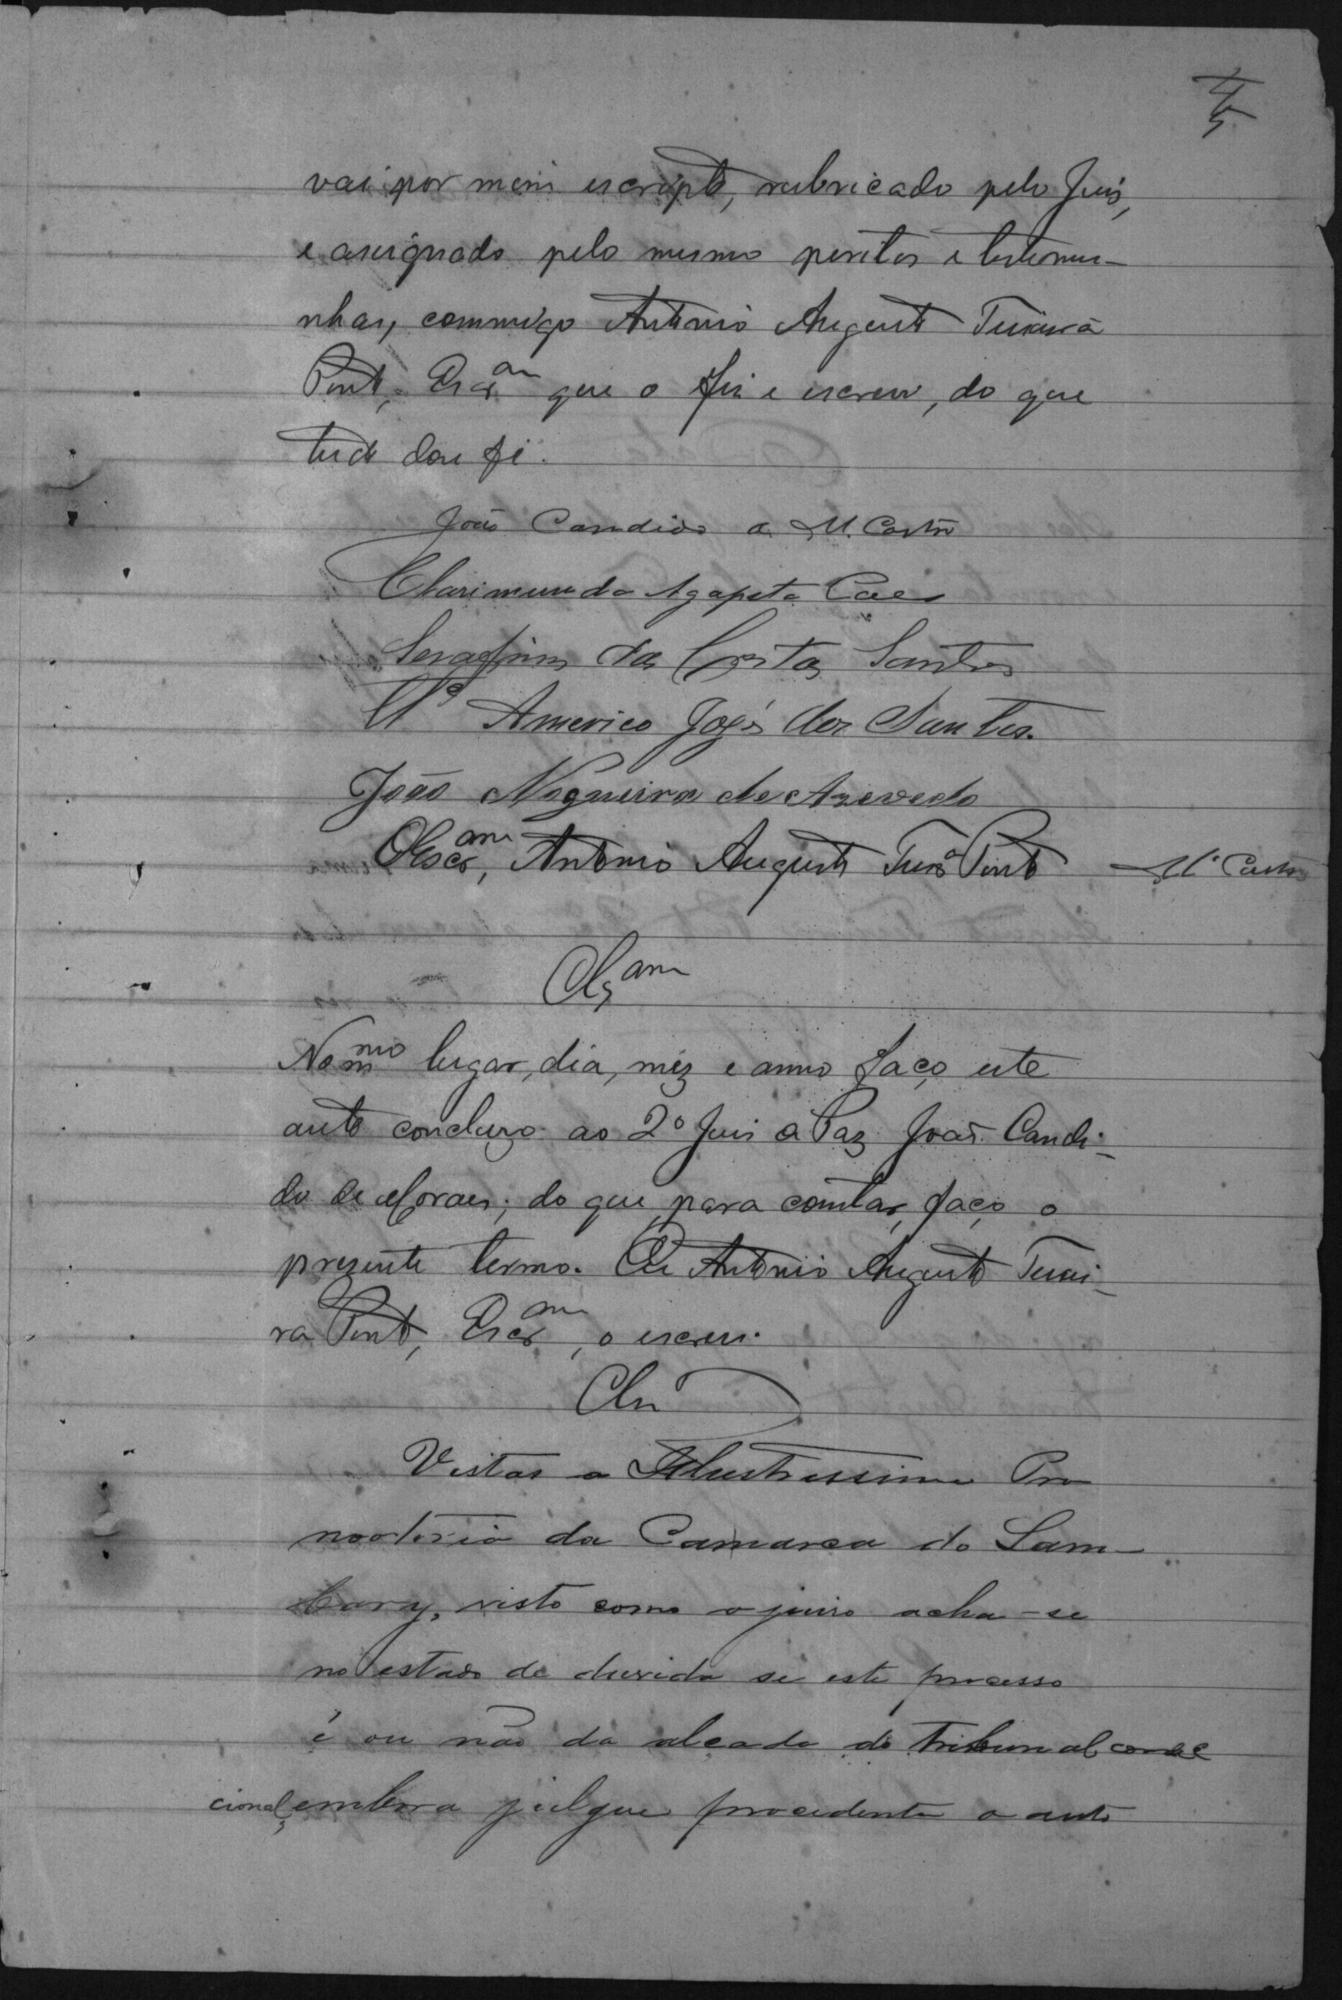 vai por mim escripto, rubricado pelo Juis,
e assignado pelo mesmo peritos e testemu-
nhas, commigo Antonio Augusto Teixeira
Pinto, Escr.am que o fiz e escrevi, do que
tudo dou fé.
João Candido de M. Castro
Clarimundo Agapeto Paes
Serafim da Costa Santos
Americo José dos Santos.
João Nogueira de Azevedo
O Escr.am, Antonio Augusto Teixra Pinto
Castro
Clsam
No mmo lugar, dia, mez e anno faço este
auto concluzo ao 2º Juis de Paz João Candi-
do de Moraes; do que para constar, faço o
prezente termo. Eu Antonio Augusto Teixei-
ra Pinto, Escr.am, o escrevi.
Clsi
Vistas a Illustrissima Pro
mootoria da Camarca do Sam-
bary, visto como o juiso acha-se
no estado de duvida se este processo
é ou não da alçada do tribunal correc
cional, embora julgue procedente o auto